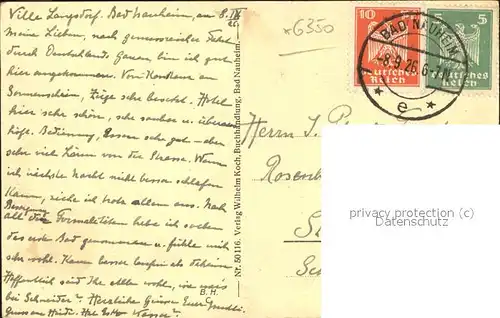 Villa Langsdorf. Bad Nauheim, am 8. IX 26.
Meine Lieben, nach genussreicher Fahrt
durch Deutschlands Gauen bin ich gut
hier angekommen. Von Konstanz an
Sonnenschein, Züge sehr besetzt. Hotel
hier sehr schön, sehr sauber u.
Bedienung, Essen sehr gut - aber
sehr viel Lärm von der Strasse. Wenn
ich nächste Nacht nicht besser schlafen
kann, ziehe ich trotz allem aus. Nach
all den Formalitäten habe ich soeben
das erste Bad genommen u. fühle mich
sehr wohl. Kann besser laufen als daheim.
Hoffentlich seid Ihr alle wohl, wie
bei Schneider? Herzliche Grüsse Euer
B. H.
Nr. 50116. Verlag Wilhelm Koch, Buchhandlung, Bad Nauheim.
*6350
10
5
Deutsches Reich
Deutsches Reich
BAD-NAUHEIM
8.9.26.6-7
* e *
Herrn J.
privacy protection
(Datenschutz)